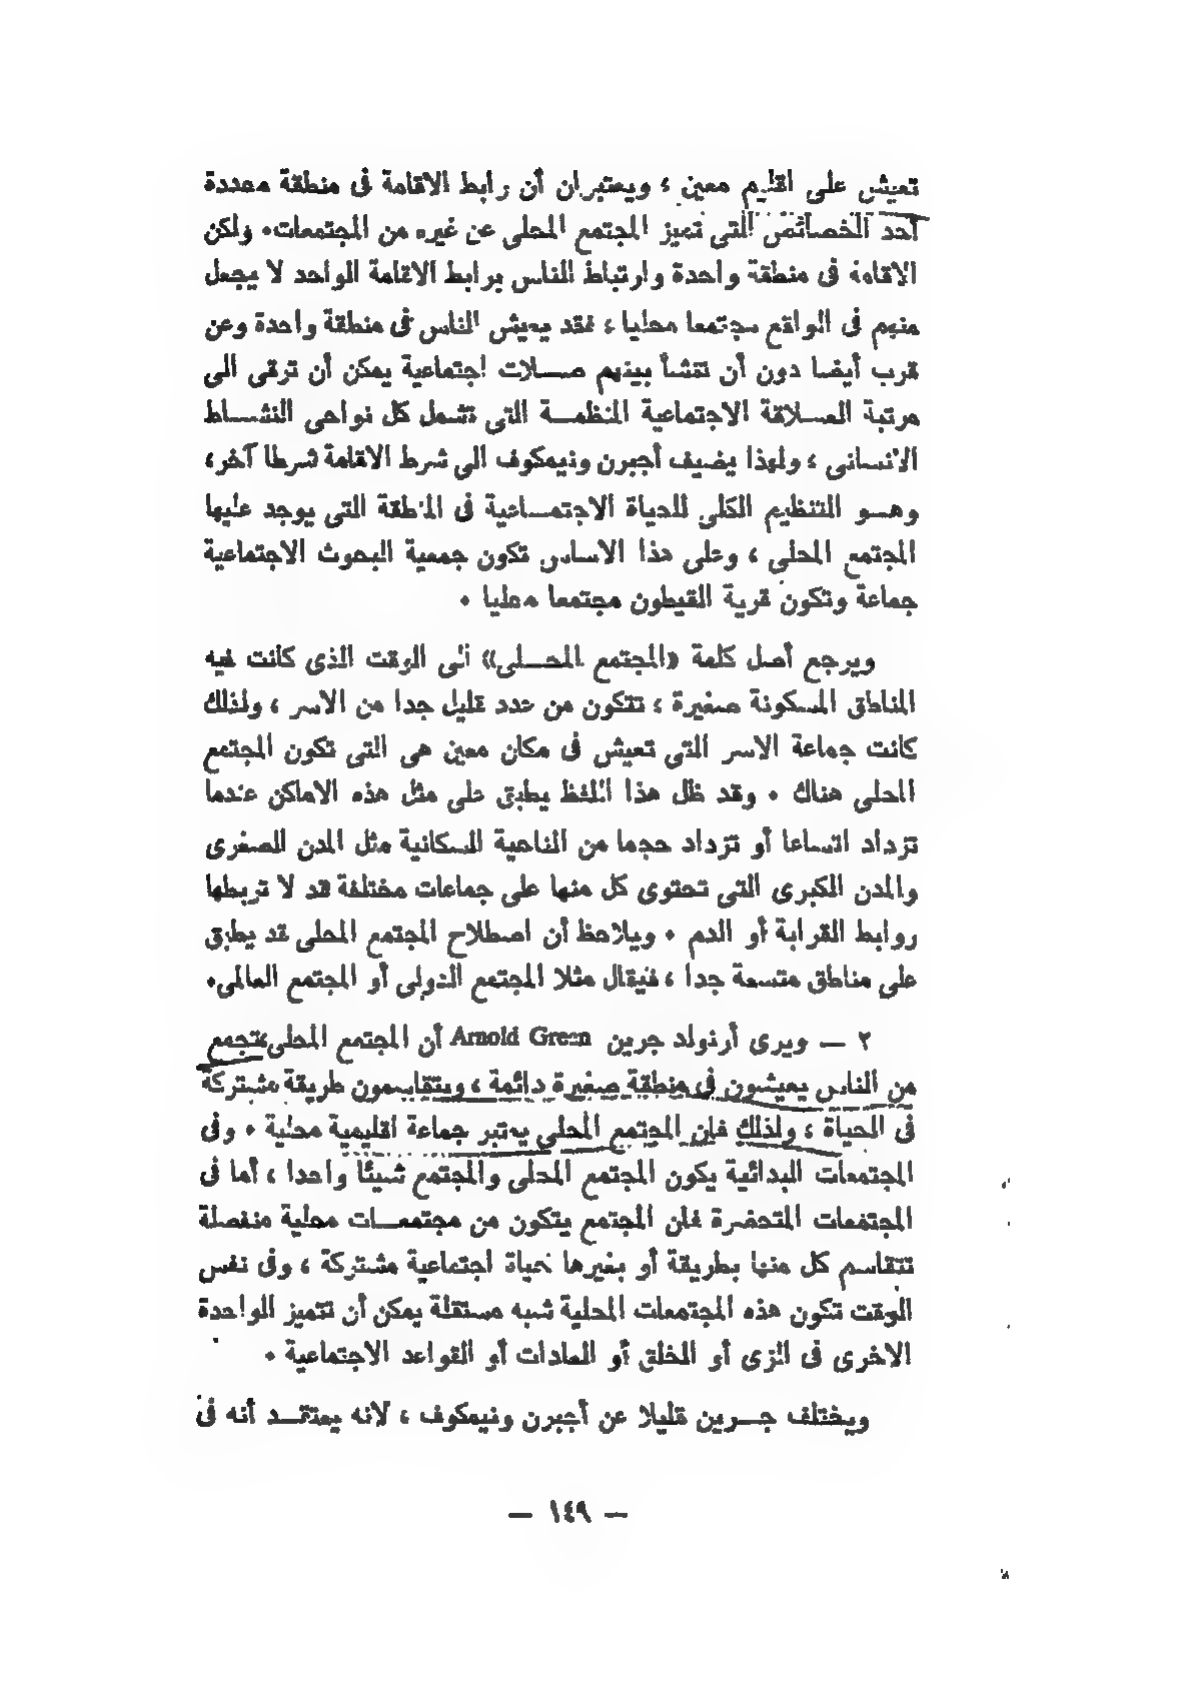 تعيش على اقليم معين ، ويعتبران أن رابط الاقامة فى منطقة محددة
أحد الخصائص التى تميز المجتمع المحلى عن غيره من المجتمعات٠ ولكن
الاقامة فى منطقة واحدة وارتباط الناس برابط الاقامة الواحد لا يجعل
منهم فى الواقع مجتمعا محليا ، فقد يعيش الناس فى منطقة واحدة وعن
قرب أيضا دون أن تنشأ بينهم صـــلات اجتماعية يمكن أن ترقى الى
مرتبة العـــلاقة الاجتماعية المنظمـــة التى تشمل كل نواحى النشـــاط
الانسانى ، ولهذا يضيف أجبرن ونيمكوف الى شرط الاقامة شرطا آخر،
وهـــو التنظيم الكلى للحياة الاجتمـــاعية فى المنطقة التى يوجد عليها
المجتمع المحلى ، وعلى هذا الاساس تكون جمعية البحوث الاجتماعية
جماعة وتكون قرية القيطون مجتمعا محليا ٠
ويرجع أصل كلمة «المجتمع المحـــلى» الى الوقت الذى كانت فيه
المناطق المسكونة صغيرة ، تتكون من عدد قليل جدا من الاسر ، ولذلك
كانت جماعة الاسر التى تعيش فى مكان معين هى التى تكون المجتمع
المحلى هناك ٠ وقد ظل هذا اللفظ يطبق على مثل هذه الاماكن عندما
تزداد اتساعا أو تزداد حجما من الناحية السكانية مثل المدن الصغرى
والمدن الكبرى التى تحتوى كل منها على جماعات مختلفة قد لا تربطها
روابط القرابة أو الدم ٠ ويلاحظ أن اصطلاح المجتمع المحلى قد يطبق
على مناطق متسعة جدا ، فيقال مثلا المجتمع الدولى أو المجتمع العالمى٠
٢ — ويرى أرنولد جرين Arnold Green أن المجتمع المحلى،تجمع
من الناس يعيشون فى منطقة صغيرة دائمة ، ويتقاسمون طريقة مشتركة
فى الحياة ، ولذلك فان المجتمع المحلى يعتبر جماعة اقليمية محلية ٠ وفى
المجتمعات البدائية يكون المجتمع المحلى والمجتمع شيئا واحدا ، أما فى
المجتمعات المتحضرة فان المجتمع يتكون من مجتمعـــات محلية منفصلة
تتقاسم كل منها بطريقة أو بغيرها حياة اجتماعية مشتركة ، وفى نفس
الوقت تكون هذه المجتمعات المحلية شبه مستقلة يمكن أن تتميز الواحدة
الاخرى فى الزى أو الخلق أو العادات أو القواعد الاجتماعية ٠
ويختلف جـــرين قليلا عن أجبرن ونيمكوف ، لانه يعتقـــد أنه فى
— ١٤٩ —